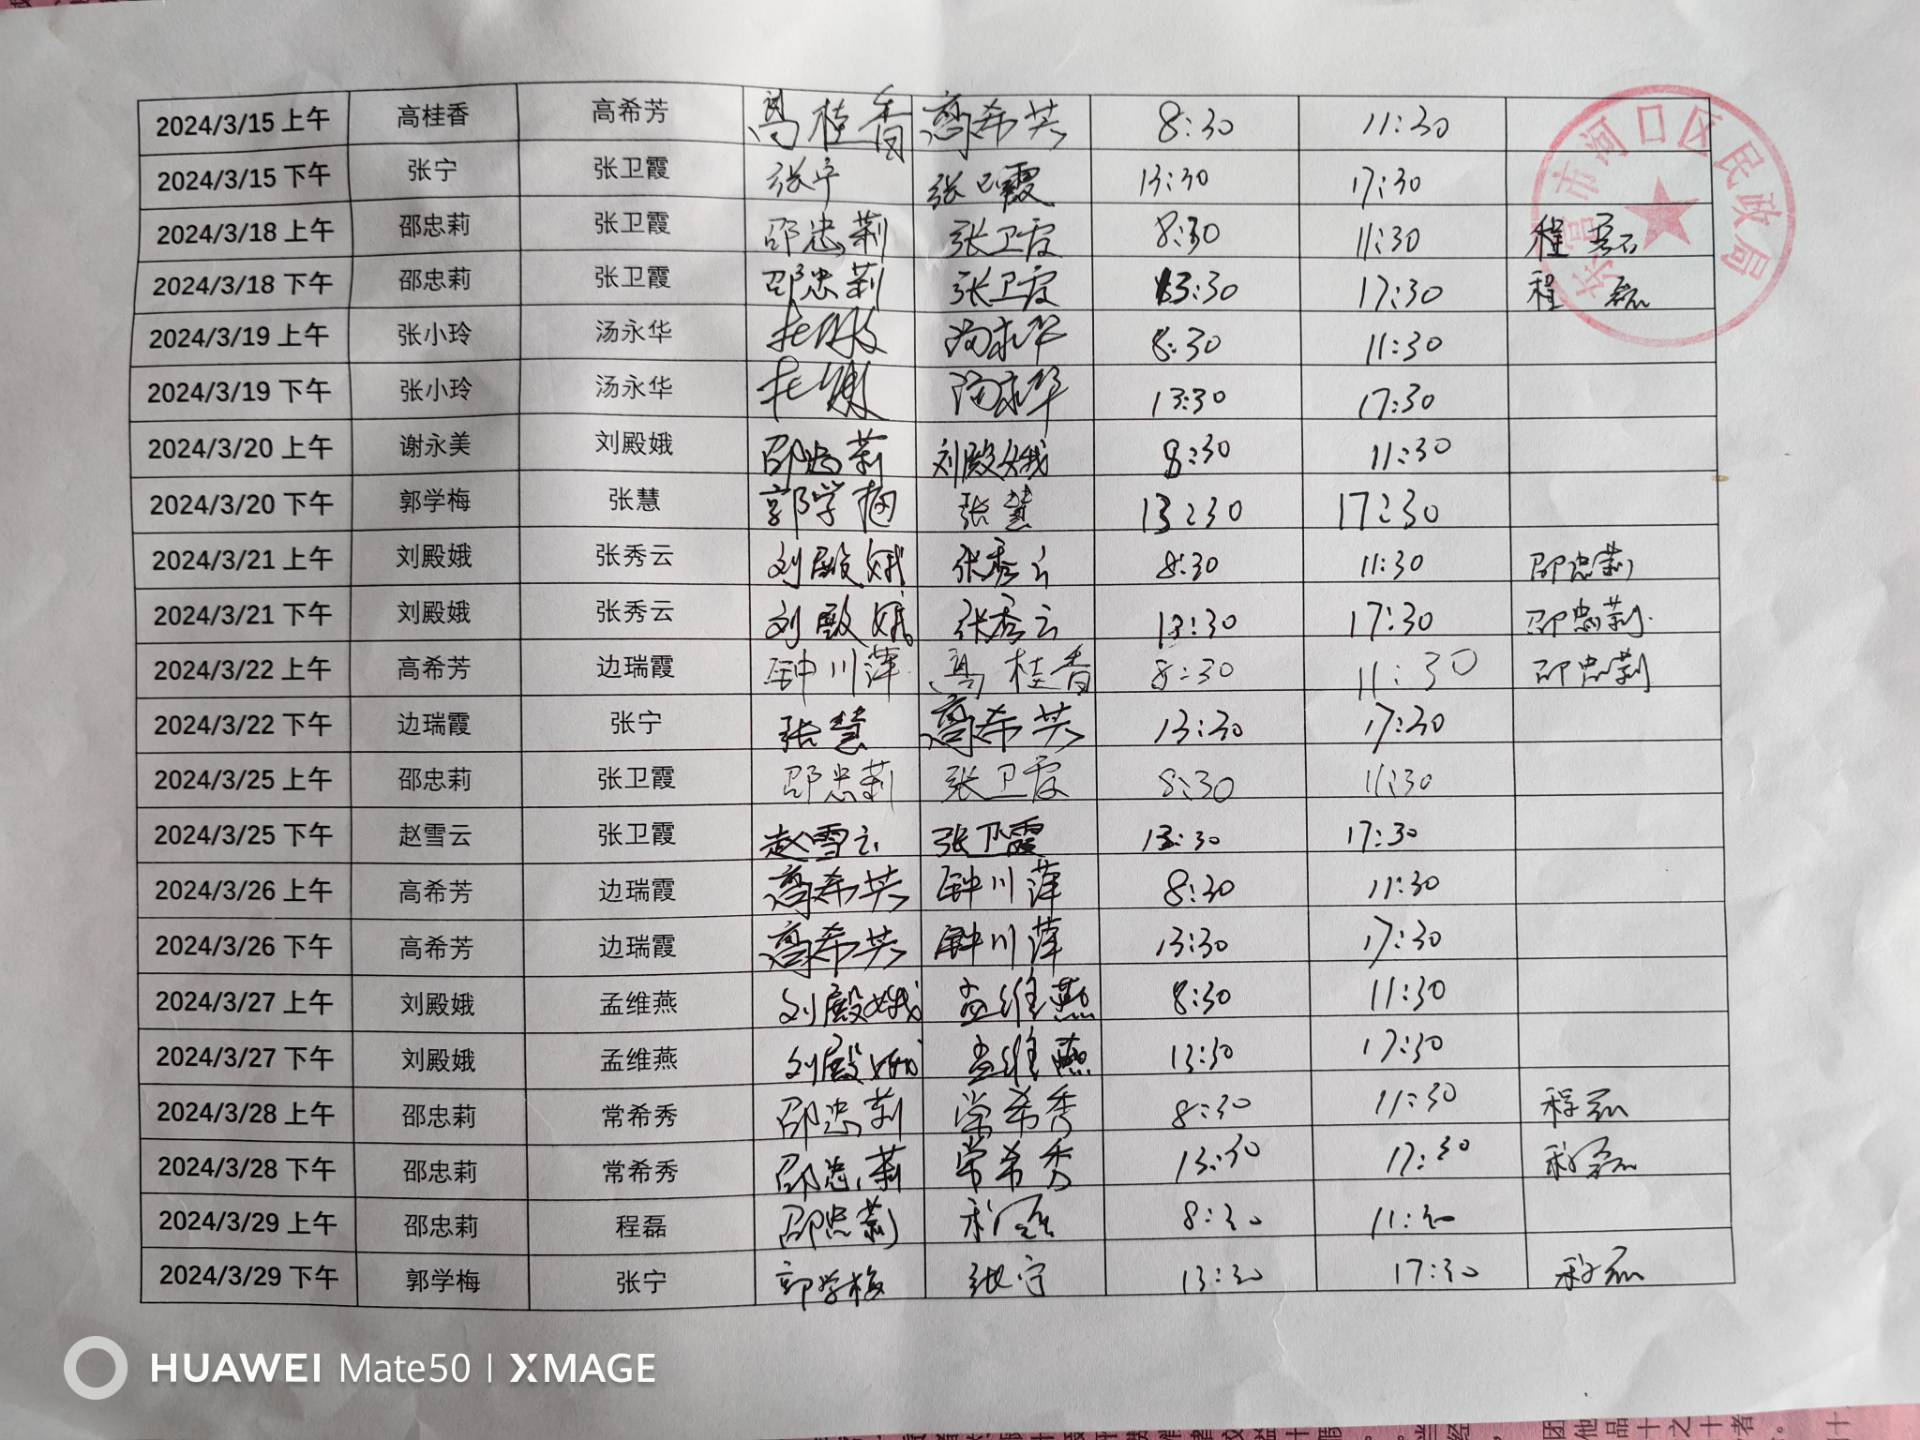 2024/3/15 上午 高桂香 高希芳 高桂香 高希芳 8:30 11:30
2024/3/15 下午 张宁 张卫霞 张宁 张卫霞 13:30 17:30
2024/3/18 上午 邵忠莉 张卫霞 邵忠莉 张卫霞 8:30 11:30 程磊
2024/3/18 下午 邵忠莉 张卫霞 邵忠莉 张卫霞 13:30 17:30 程磊
2024/3/19 上午 张小玲 汤永华 汤永华 8:30 11:30
2024/3/19 下午 张小玲 汤永华 汤永华 13:30 17:30
2024/3/20 上午 谢永美 刘殿娥 邵忠莉 刘殿娥 8:30 11:30
2024/3/20 下午 郭学梅 张慧 郭学梅 张慧 13:30 17:30
2024/3/21 上午 刘殿娥 张秀云 刘殿娥 张秀云 8:30 11:30 邵忠莉
2024/3/21 下午 刘殿娥 张秀云 刘殿娥 张秀云 13:30 17:30 邵忠莉
2024/3/22 上午 高希芳 边瑞霞 钟川萍 高桂香 8:30 11:30 邵忠莉
2024/3/22 下午 边瑞霞 张宁 张慧 高希芳 13:30 17:30
2024/3/25 上午 邵忠莉 张卫霞 邵忠莉 张卫霞 8:30 11:30
2024/3/25 下午 赵雪云 张卫霞 赵雪云 张卫霞 13:30 17:30
2024/3/26 上午 高希芳 边瑞霞 高希芳 钟川萍 8:30 11:30
2024/3/26 下午 高希芳 边瑞霞 高希芳 钟川萍 13:30 17:30
2024/3/27 上午 刘殿娥 孟维燕 刘殿娥 孟维燕 8:30 11:30
2024/3/27 下午 刘殿娥 孟维燕 刘殿娥 孟维燕 13:30 17:30
2024/3/28 上午 邵忠莉 常希秀 邵忠莉 常希秀 8:30 11:30 程磊
2024/3/28 下午 邵忠莉 常希秀 邵忠莉 常希秀 13:30 17:30 程磊
2024/3/29 上午 邵忠莉 程磊 邵忠莉 程磊 8:30 11:30
2024/3/29 下午 郭学梅 张宁 郭学梅 张宁 13:30 17:30 程磊
东营市河口区民政局
HUAWEI Mate50 | XMAGE